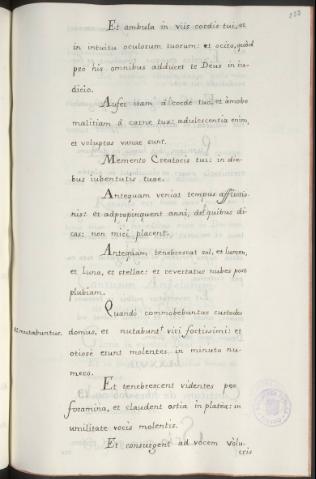 Et ambula in viis cordis tui, et
in intuitu oculorum tuorum: et scito, quod
pro his omnibus adducet te Deus in iu-
dicio.
Aufer iram à corde tuo, et àmobe
malitiam à carne tua: adulescentia enim,
et voluptas vanae sunt.
Memento Creatoris tui: in die-
bus iubentutis tuae.
Antequam veniat tempus afflictio
nis: et adpropinquent anni, de quibus di-
cas: non mici placent.
Antequam tenebrescat sol, et lumen,
et Luna, et stellae: et revertatur nubes post
plubiam.
Quando commobebuntur custodes
et nutabuntur.
domus, et nutabunt viri fortissimi: et
otiosè erunt molentes in minuto nu-
mero.
Et tenebrescent videntes per
foramina, et claudent ostia in platea: in
umilitate vocis molentis.
Et consurgent ad vocem volu-
cris